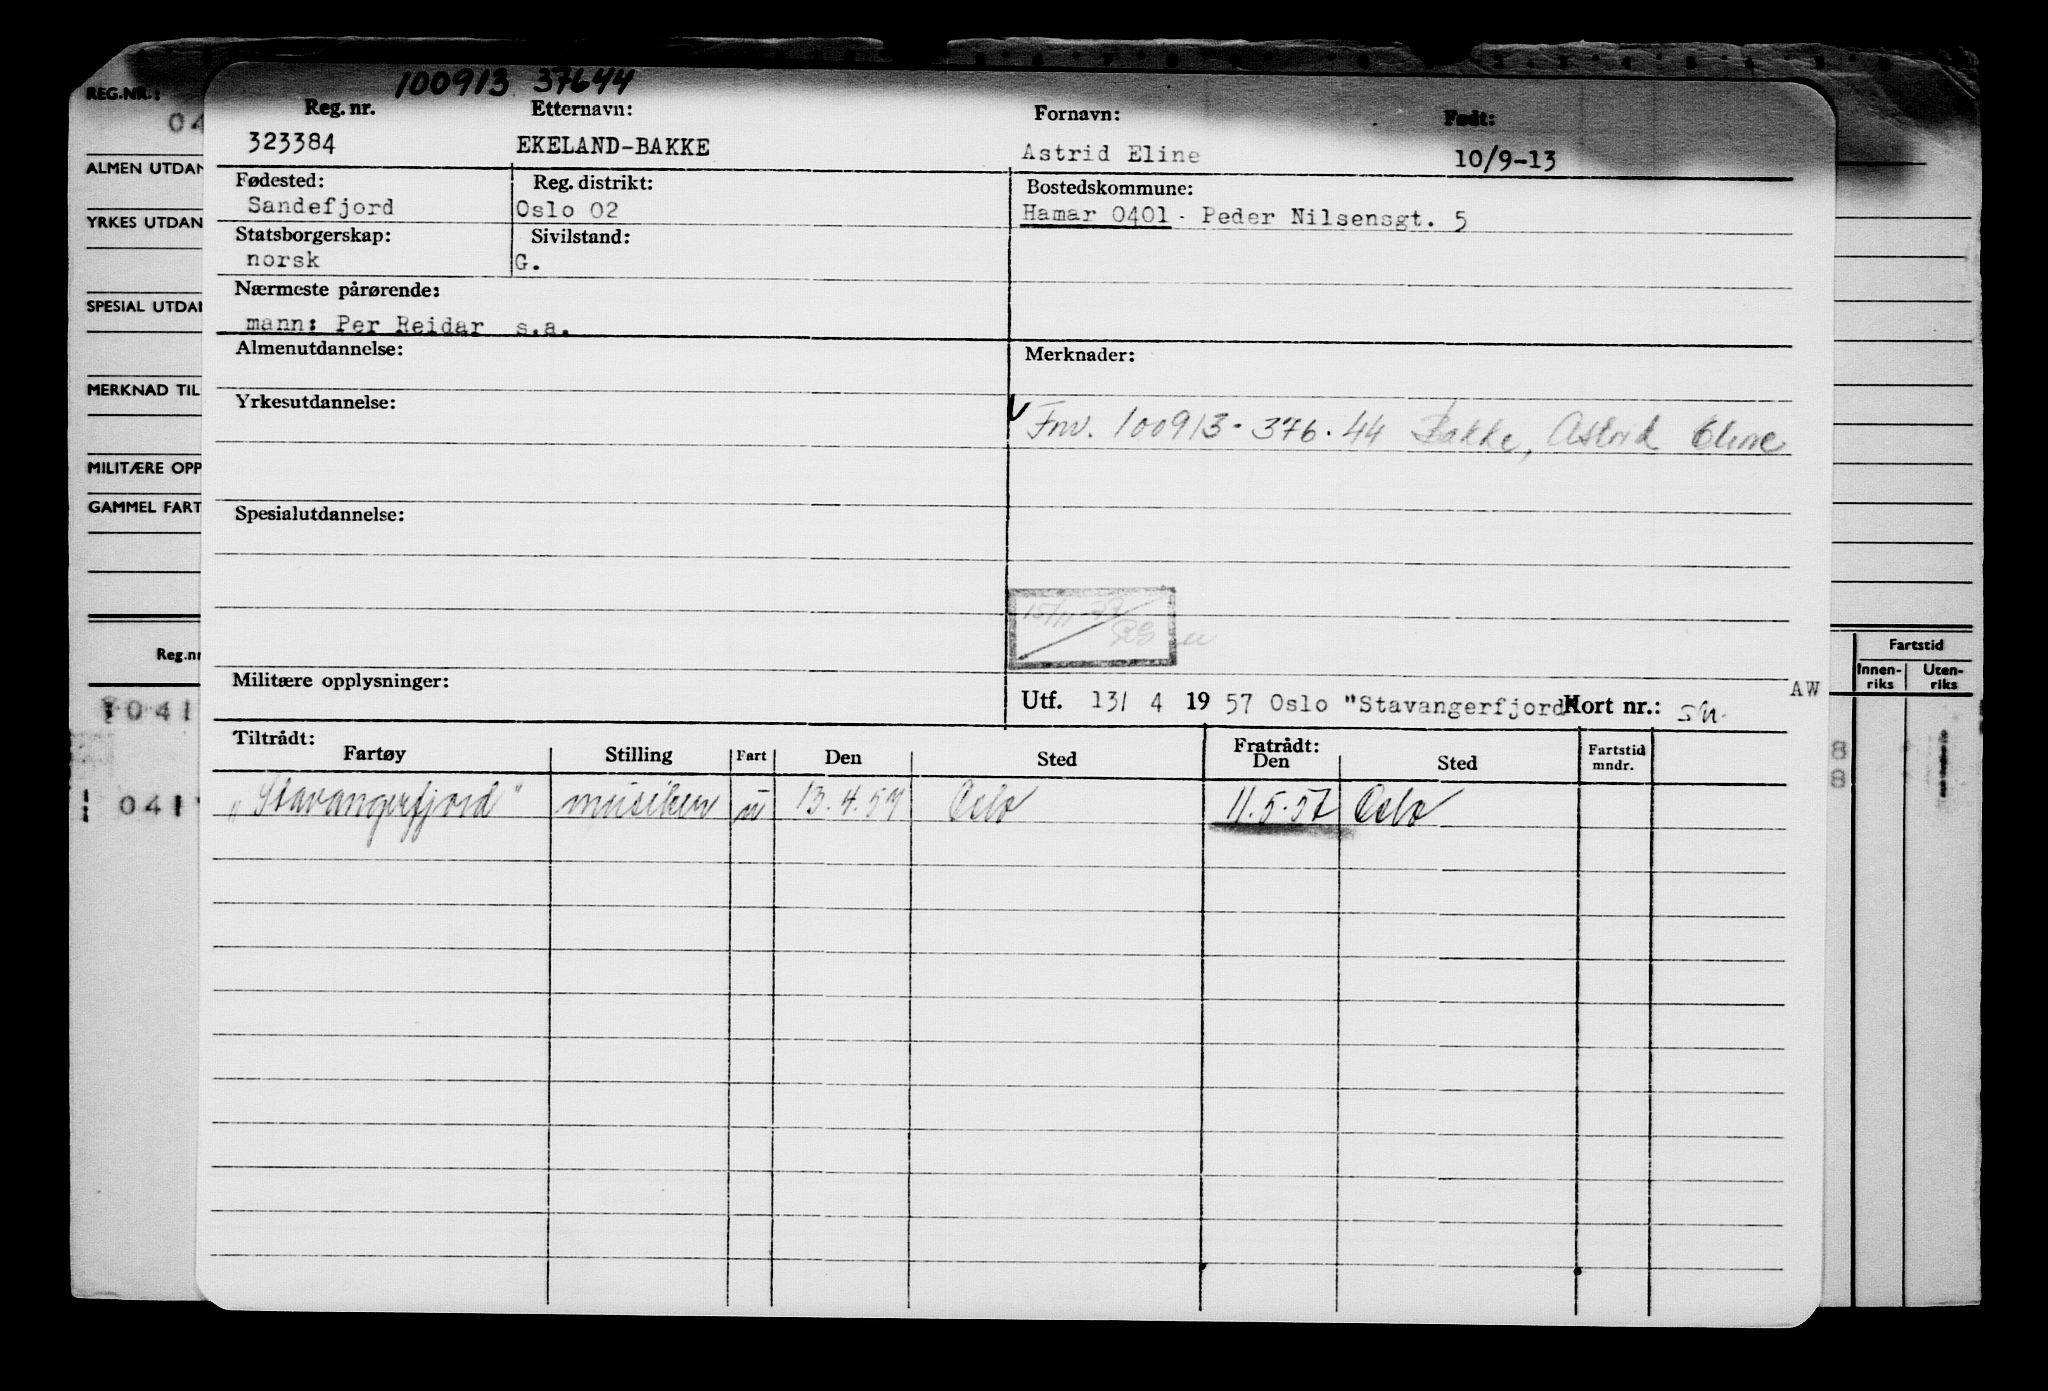 100913 37644
REG.NR.:
Reg. nr. Etternavn: Fornavn: Født:
04
323384 EKELAND-BAKKE Astrid Eline 10/9-13
ALMEN UTDAN
Fødested: Reg. distrikt: Bostedskommune:
Sandefjord Oslo 02 Hamar 0401 - Peder Nilsensgt. 5
YRKES UTDAN
Statsborgerskap: Sivilstand:
norsk G.
Nærmeste pårørende:
SPESIAL UTDAN
mann: Per Reidar s.a.
Almenutdannelse: Merknader:
MERKNAD TIL
Yrkesutdannelse:
Fnr. 100913-376.44 Bakke, Astrid Eline
MILITÆRE OPP
GAMMEL FART
Spesialutdannelse:
15/11
Reg.nr
Fartstid
Innen-riks Uten-riks
Militære opplysninger:
Utf. 13/ 4 19 57 Oslo "Stavangerfjord" Kort nr.: AW
041
Tiltrådt: Fratrådt:
Fartøy Stilling Fart Den Sted Den Sted Fartstid mndr.
8
8
041
"Stavangerfjord" musiker u 13.4.57 Oslo 11.5.57 Oslo